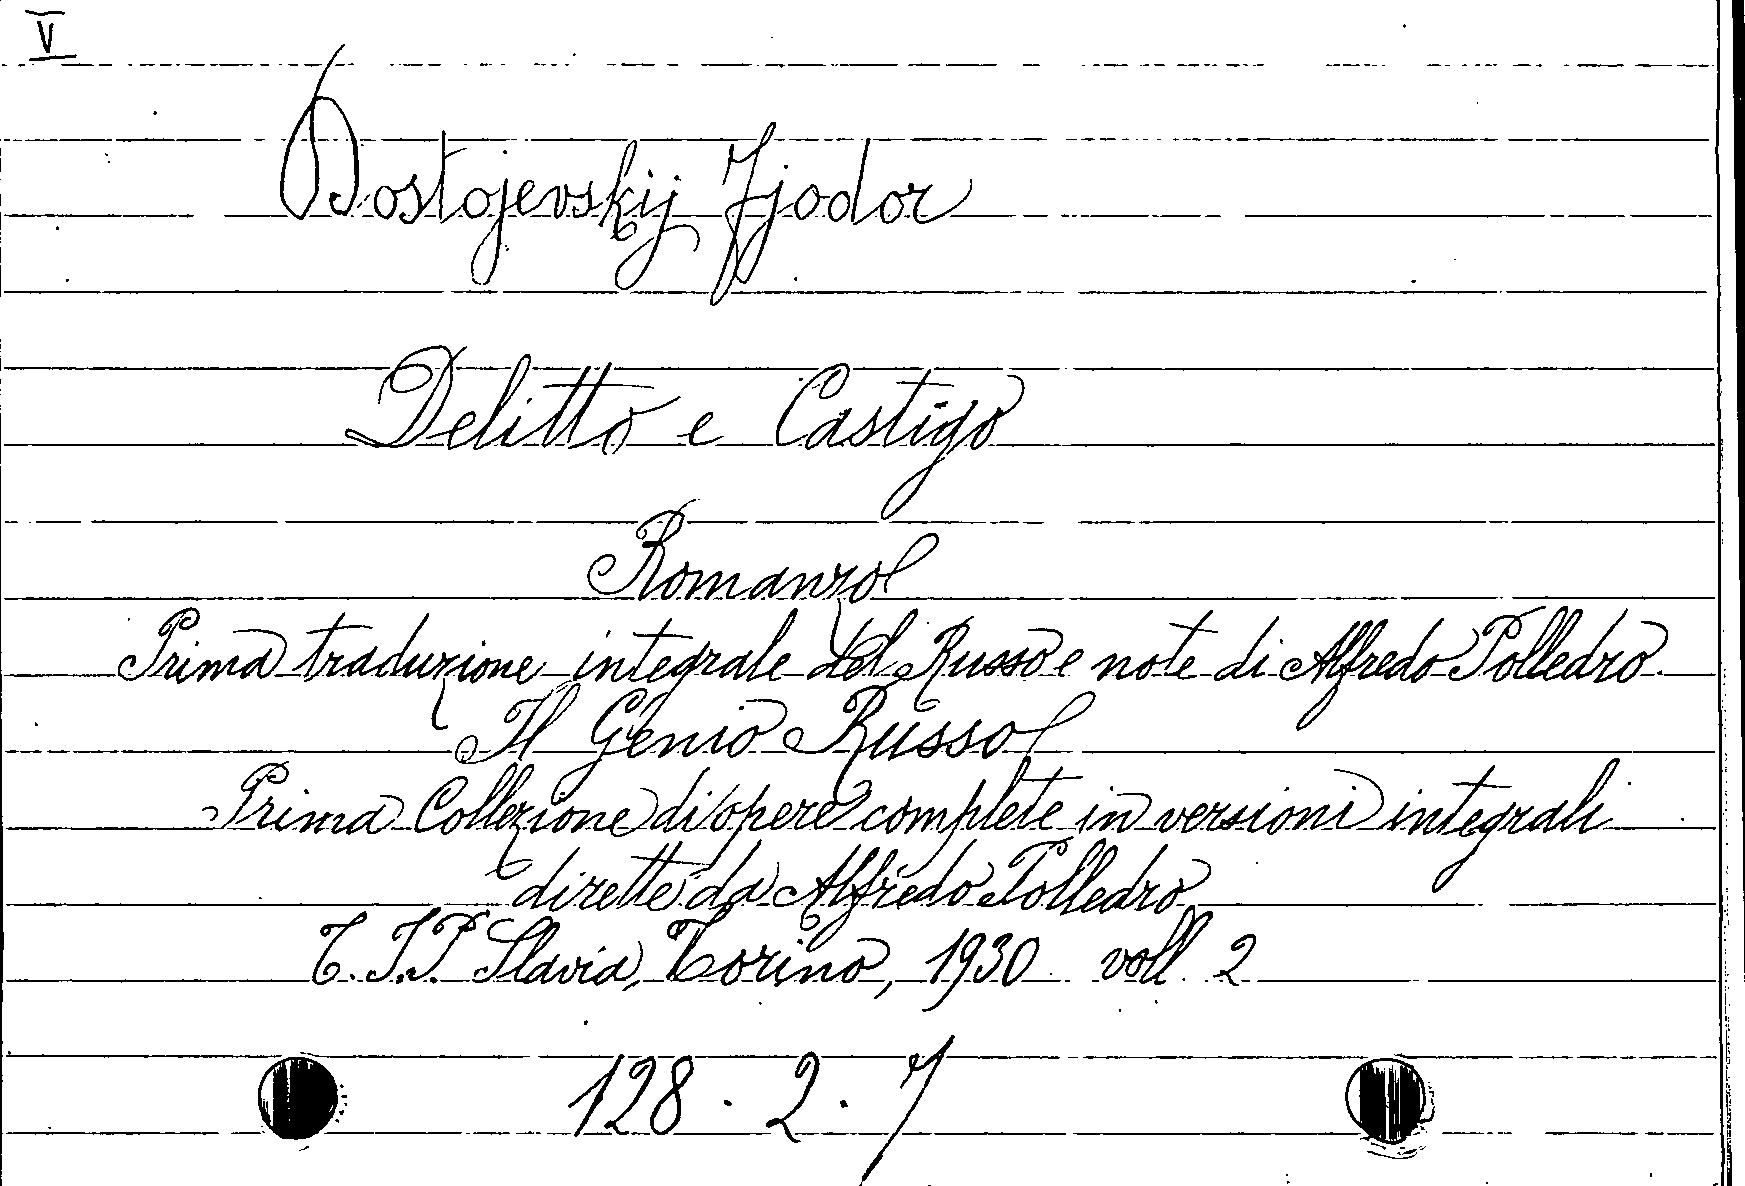 V
Dostojevskij Fjodor
Delitto e Castigo
Romanzo
Prima traduzione integrale del Russo e note di Alfredo Polledro
Il Genio Russo
Prima Collezione di opere complete in versioni integrali
dirette da Alfredo Polledro
T. I.P. Slavia, Torino, 1930 voll. 2
128. 2. 7